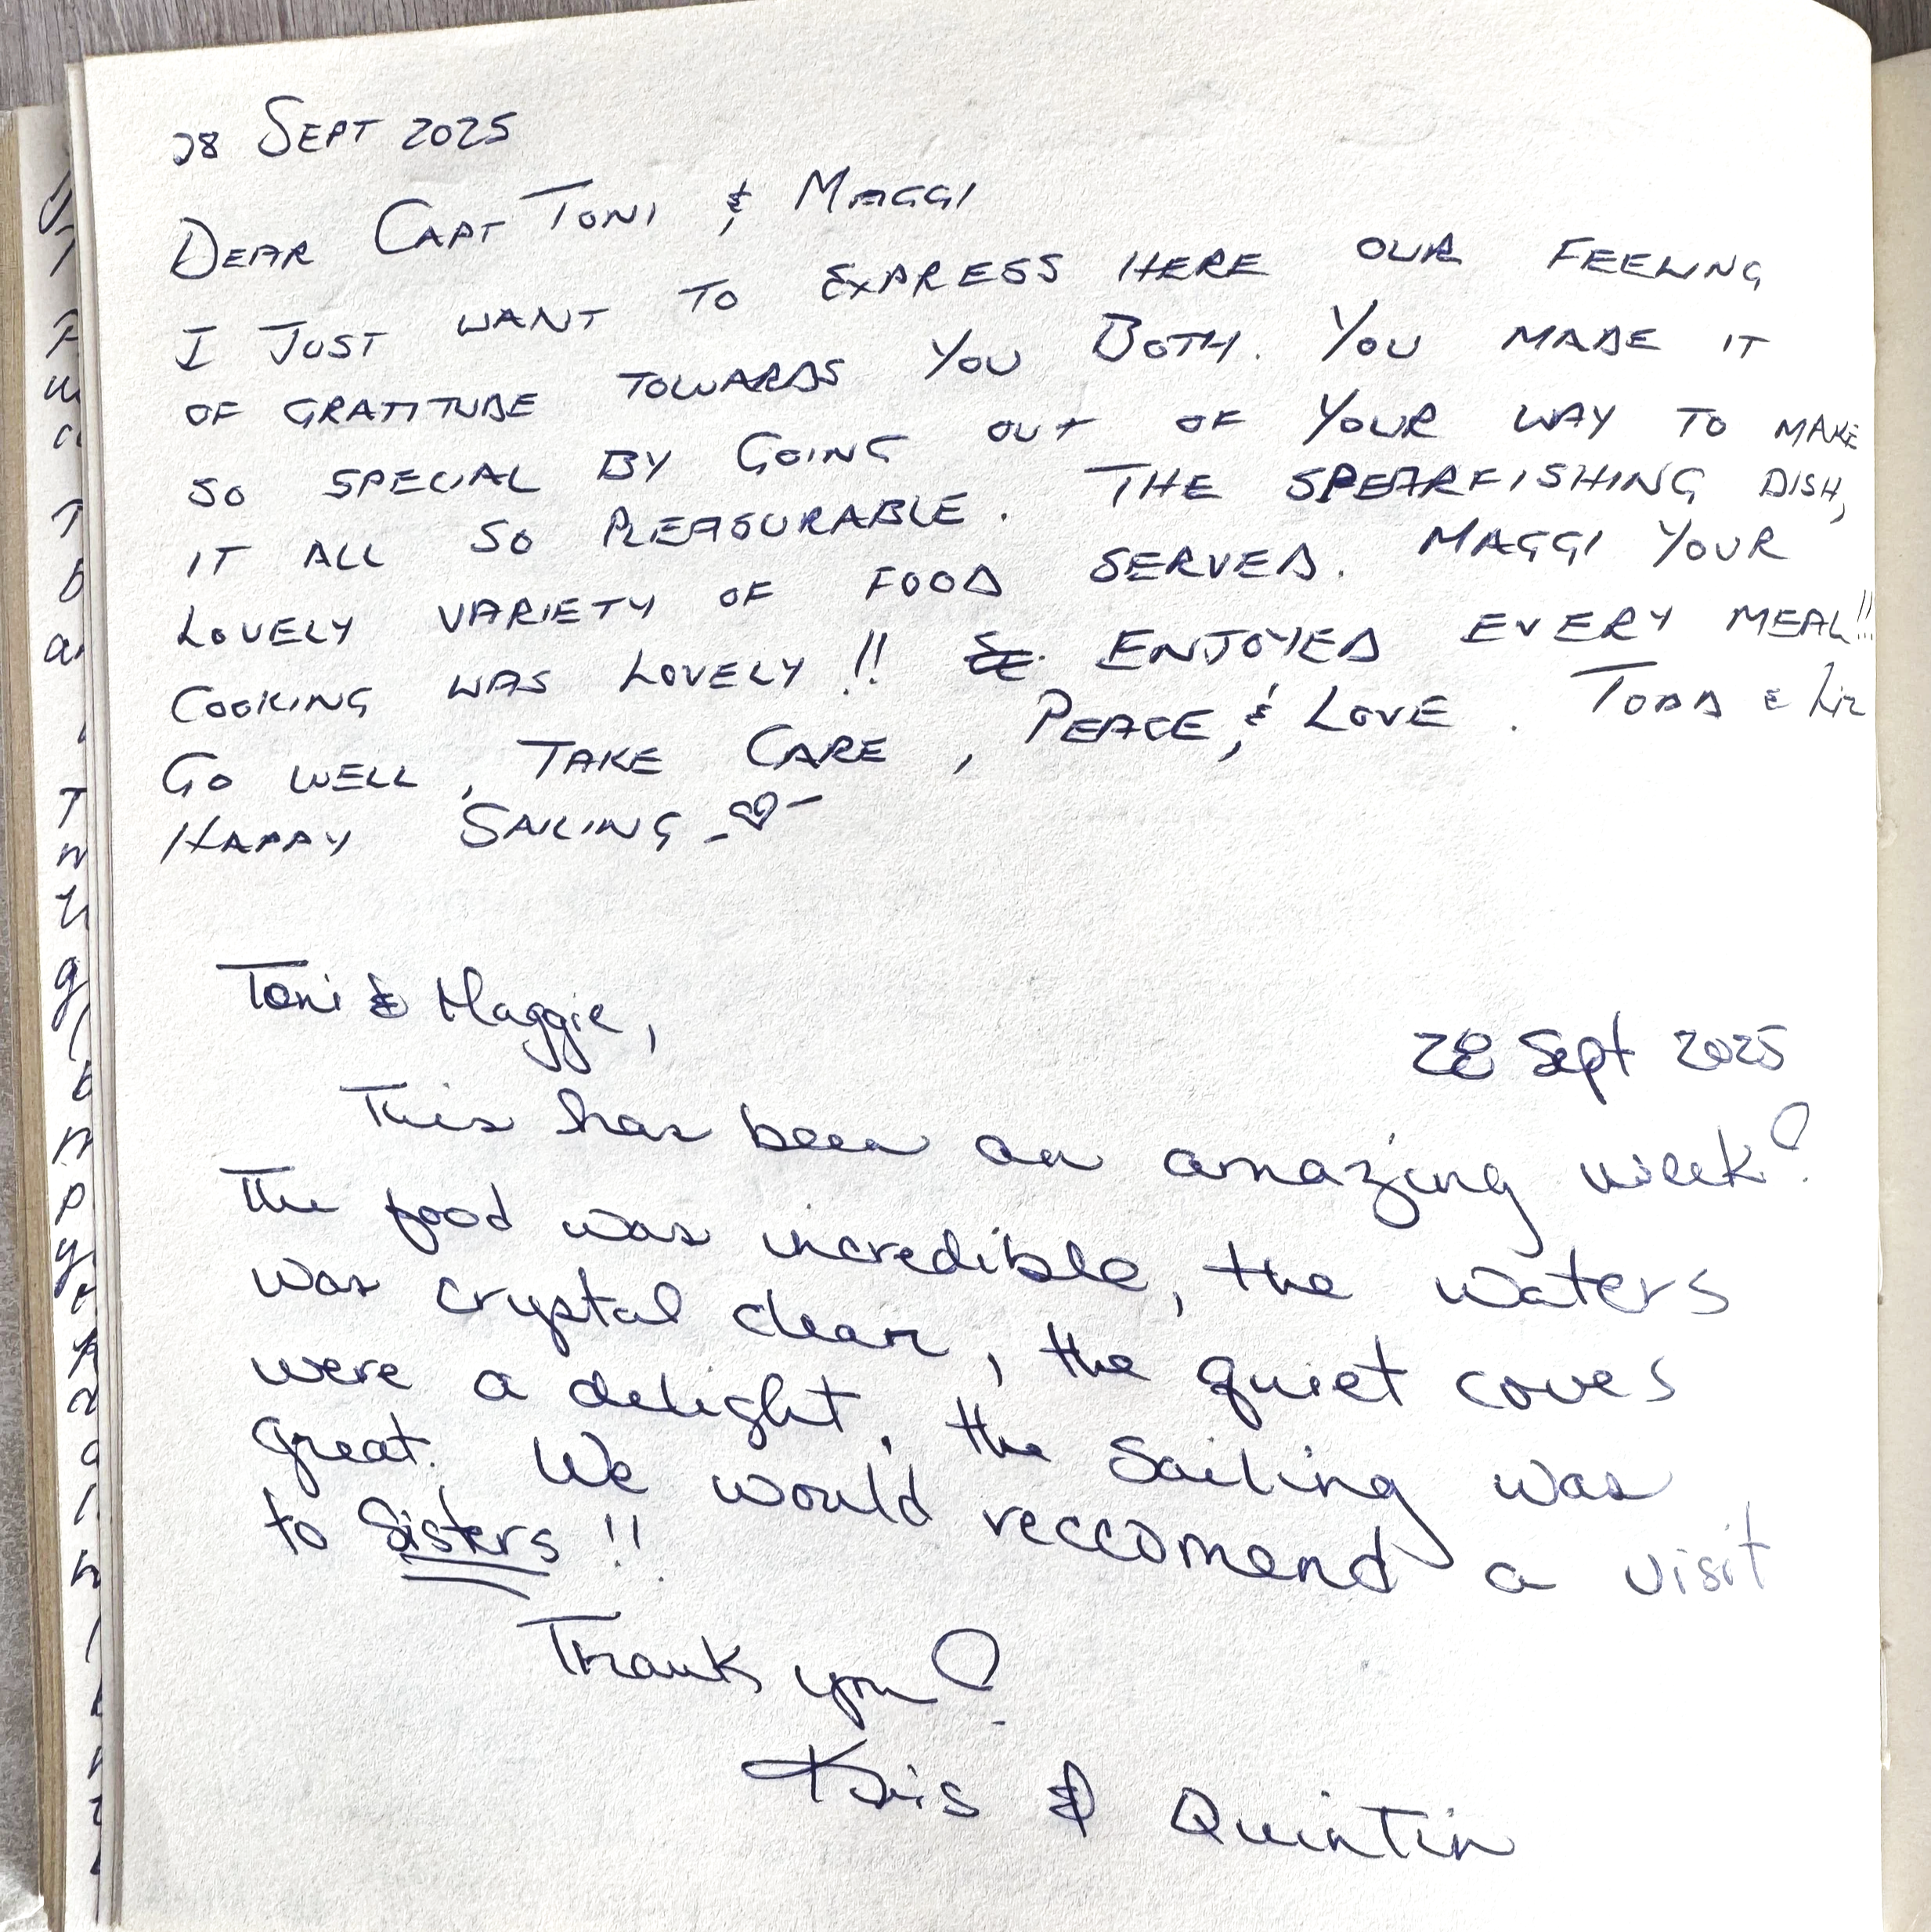 28 SEPT 2025
DEAR CAPT TONI & MAGGI
I JUST WANT TO EXPRESS HERE OUR FEELING
OF GRATITUDE TOWARDS YOU BOTH. YOU MADE IT
SO SPECIAL BY GOING OUT OF YOUR WAY TO MAKE
IT ALL SO PLEASURABLE. THE SPEARFISHING DISH,
LOVELY VARIETY OF FOOD SERVED. MAGGI YOUR
COOKING WAS LOVELY!! ENJOYED EVERY MEAL!!
GO WELL, TAKE CARE, PEACE, & LOVE. TODD & LIZ
HAPPY SAILING
Toni & Maggie,
28 Sept 2025
This has been an amazing week!
The food was incredible, the waters
was crystal clear, the quiet coves
were a delight, the sailing was
great. We would reccomend a visit
to Sisters!!
Thank you!
Kris & Quintin